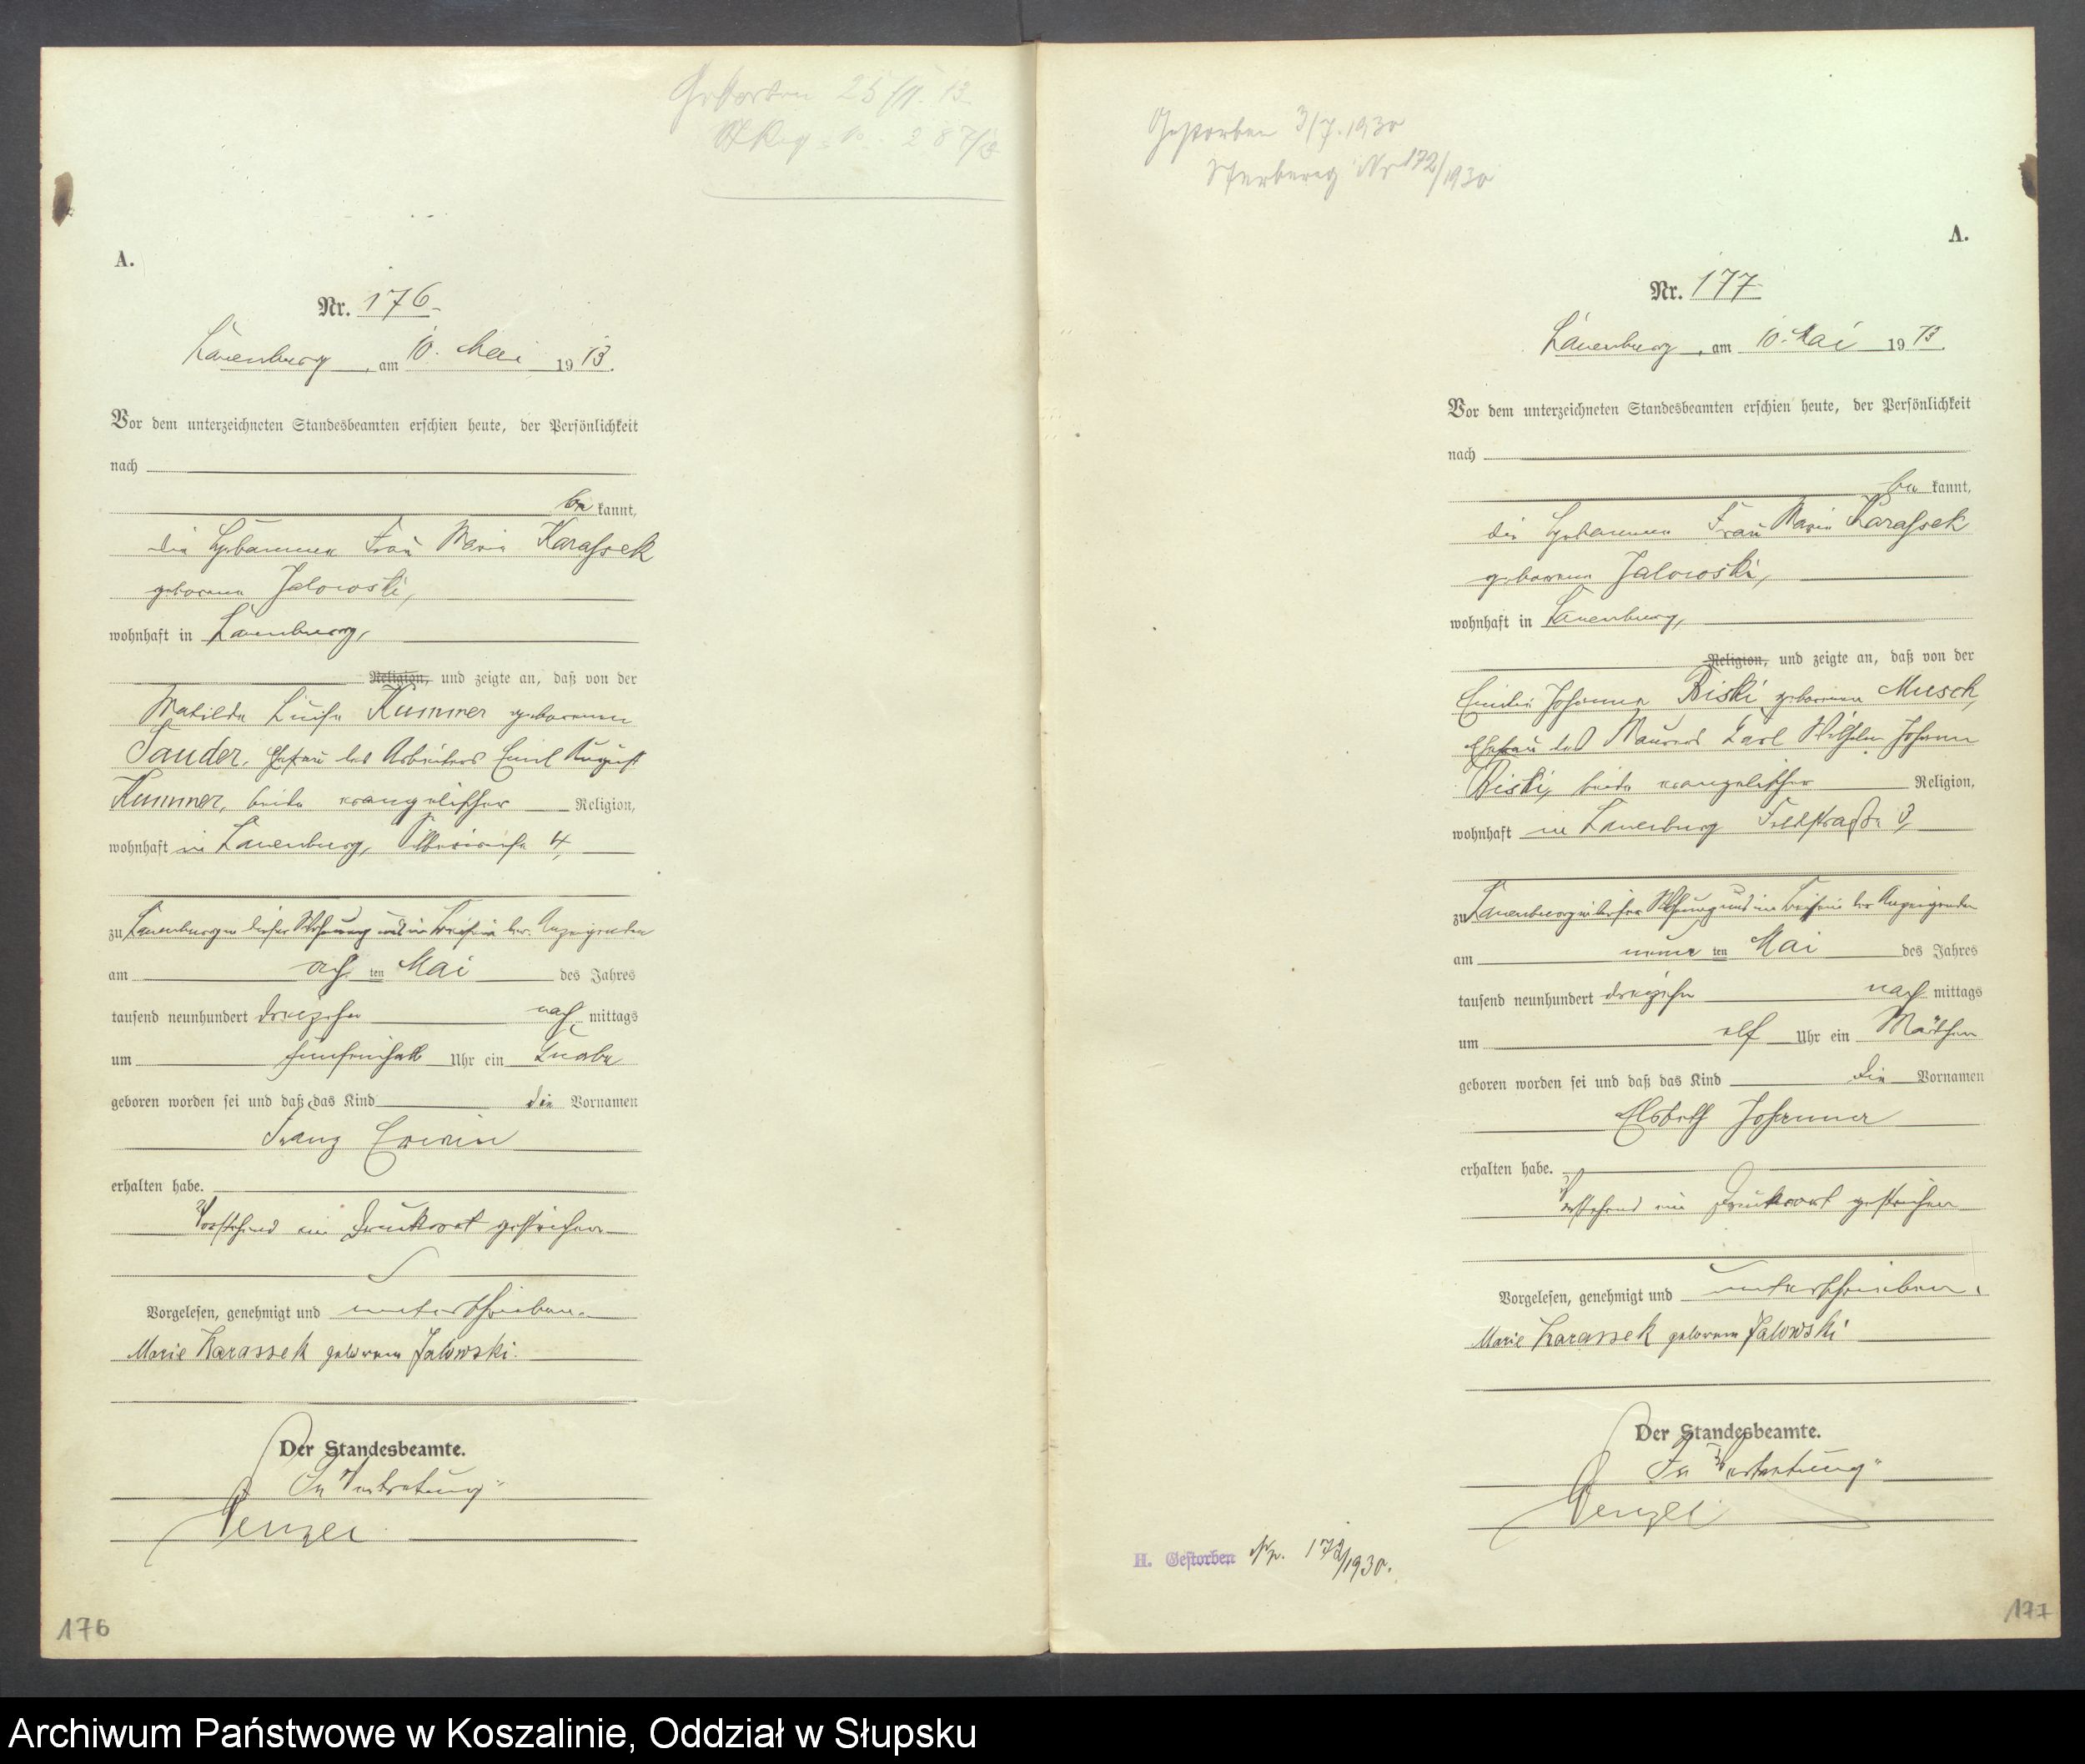 Gestorben 25/11.13
A.
Nr. 176.
Lauenburg, am 10. Mai 1913.
Vor dem unterzeichneten Standesbeamten erschien heute, der Persönlichkeit
nach
be kannt,
die Hebamme Frau Marie Karassek
geborene Jalowski,
wohnhaft in Lauenburg,
Religion, und zeigte an, daß von der
Matilde Luise Kummer geborenen
Sauder, Ehefrau des Arbeiters Emil August
Kummer, beide evangelischer Religion,
wohnhaft in Lauenburg, 4,
zu Lauenburg in dieser Wohnung und im Beisein der Anzeigenden
am achten Mai des Jahres
tausend neunhundert dreizehn nach mittags
um fünfeinhalb Uhr ein Knabe
geboren worden sei und daß das Kind die Vornamen
Franz Erwin
erhalten habe.
Vorstehend ein Druckwort gestrichen
Vorgelesen, genehmigt und unterschrieben.
Marie Karassek geborene Jalowski.
Der Standesbeamte.
In Vertretung
Penzel
176
Gestorben 3/7.1930
Sterbereg Nr 172/1930
A.
Nr. 177
Lauenburg, am 10. Mai 1913.
Vor dem unterzeichneten Standesbeamten erschien heute, der Persönlichkeit
nach
be kannt,
die Hebamme Frau Marie Karassek
geborene Jalowski,
wohnhaft in Lauenburg,
Religion, und zeigte an, daß von der
Emilie Johanna Riski geborenen Musch,
Ehefrau des Maurers Karl Wilhelm Johann
Riski, beide evangelischer Religion,
wohnhaft in Lauenburg Feldstraße 3,
zu Lauenburg in dieser Wohnung und im Beisein der Anzeigenden
am neunten Mai des Jahres
tausend neunhundert dreizehn nach mittags
um elf Uhr ein Mädchen
geboren worden sei und daß das Kind die Vornamen
Elsbeth Johanna
erhalten habe.
Vorstehend ein Druckwort gestrichen
Vorgelesen, genehmigt und unterschrieben.
Marie Karassek geborene Jalowski
Der Standesbeamte.
In Vertretung
Penzel
H. Gestorben Nr. 172/1930.
177
Archiwum Państwowe w Koszalinie, Oddział w Słupsku